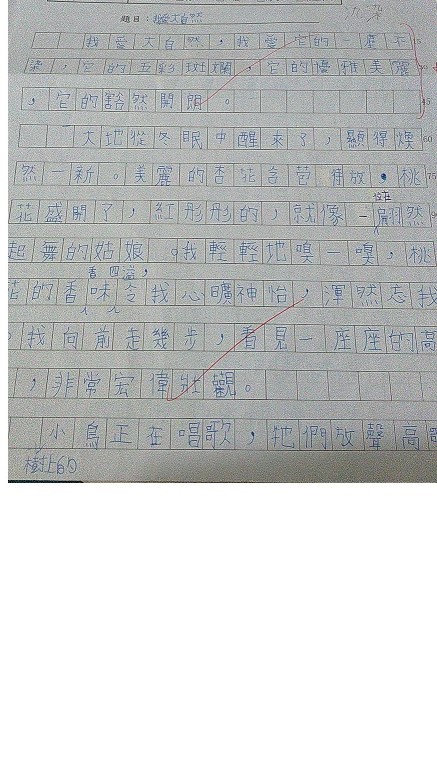 題目：我愛大自然
我愛大自然，我愛它的一塵不
染，它的五彩斑斕，它的優雅美麗
，它的豁然開朗。
大地從冬眠中醒來了，顯得煥
然一新。美麗的杏花含苞待放，桃
花盛開了，紅彤彤的，就像一位翩然
起舞的姑娘。我輕輕地嗅一嗅，桃
花的香味令我心曠神怡，渾然忘我
香四溢，
。我向前走幾步，看見一座座的高
，非常宏偉壯觀。
小鳥正在唱歌，牠們放聲高歌
樹上的